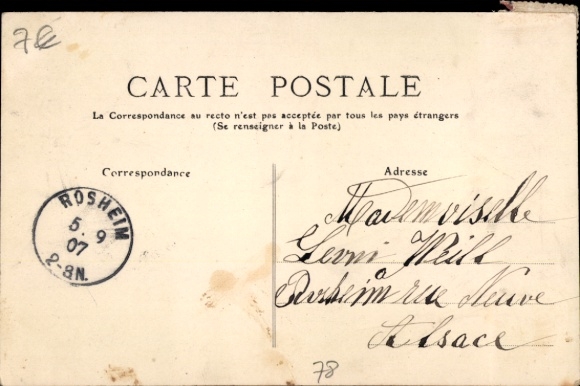 7€
CARTE POSTALE
La Correspondance au recto n'est pas acceptée par tous les pays étrangers
(Se renseigner à la Poste)
Correspondance
Adresse
ROSHEIM
5. 9
07
2-8N.
Mademoiselle
Weill
Rosheim rue Neuve
Alsace
78